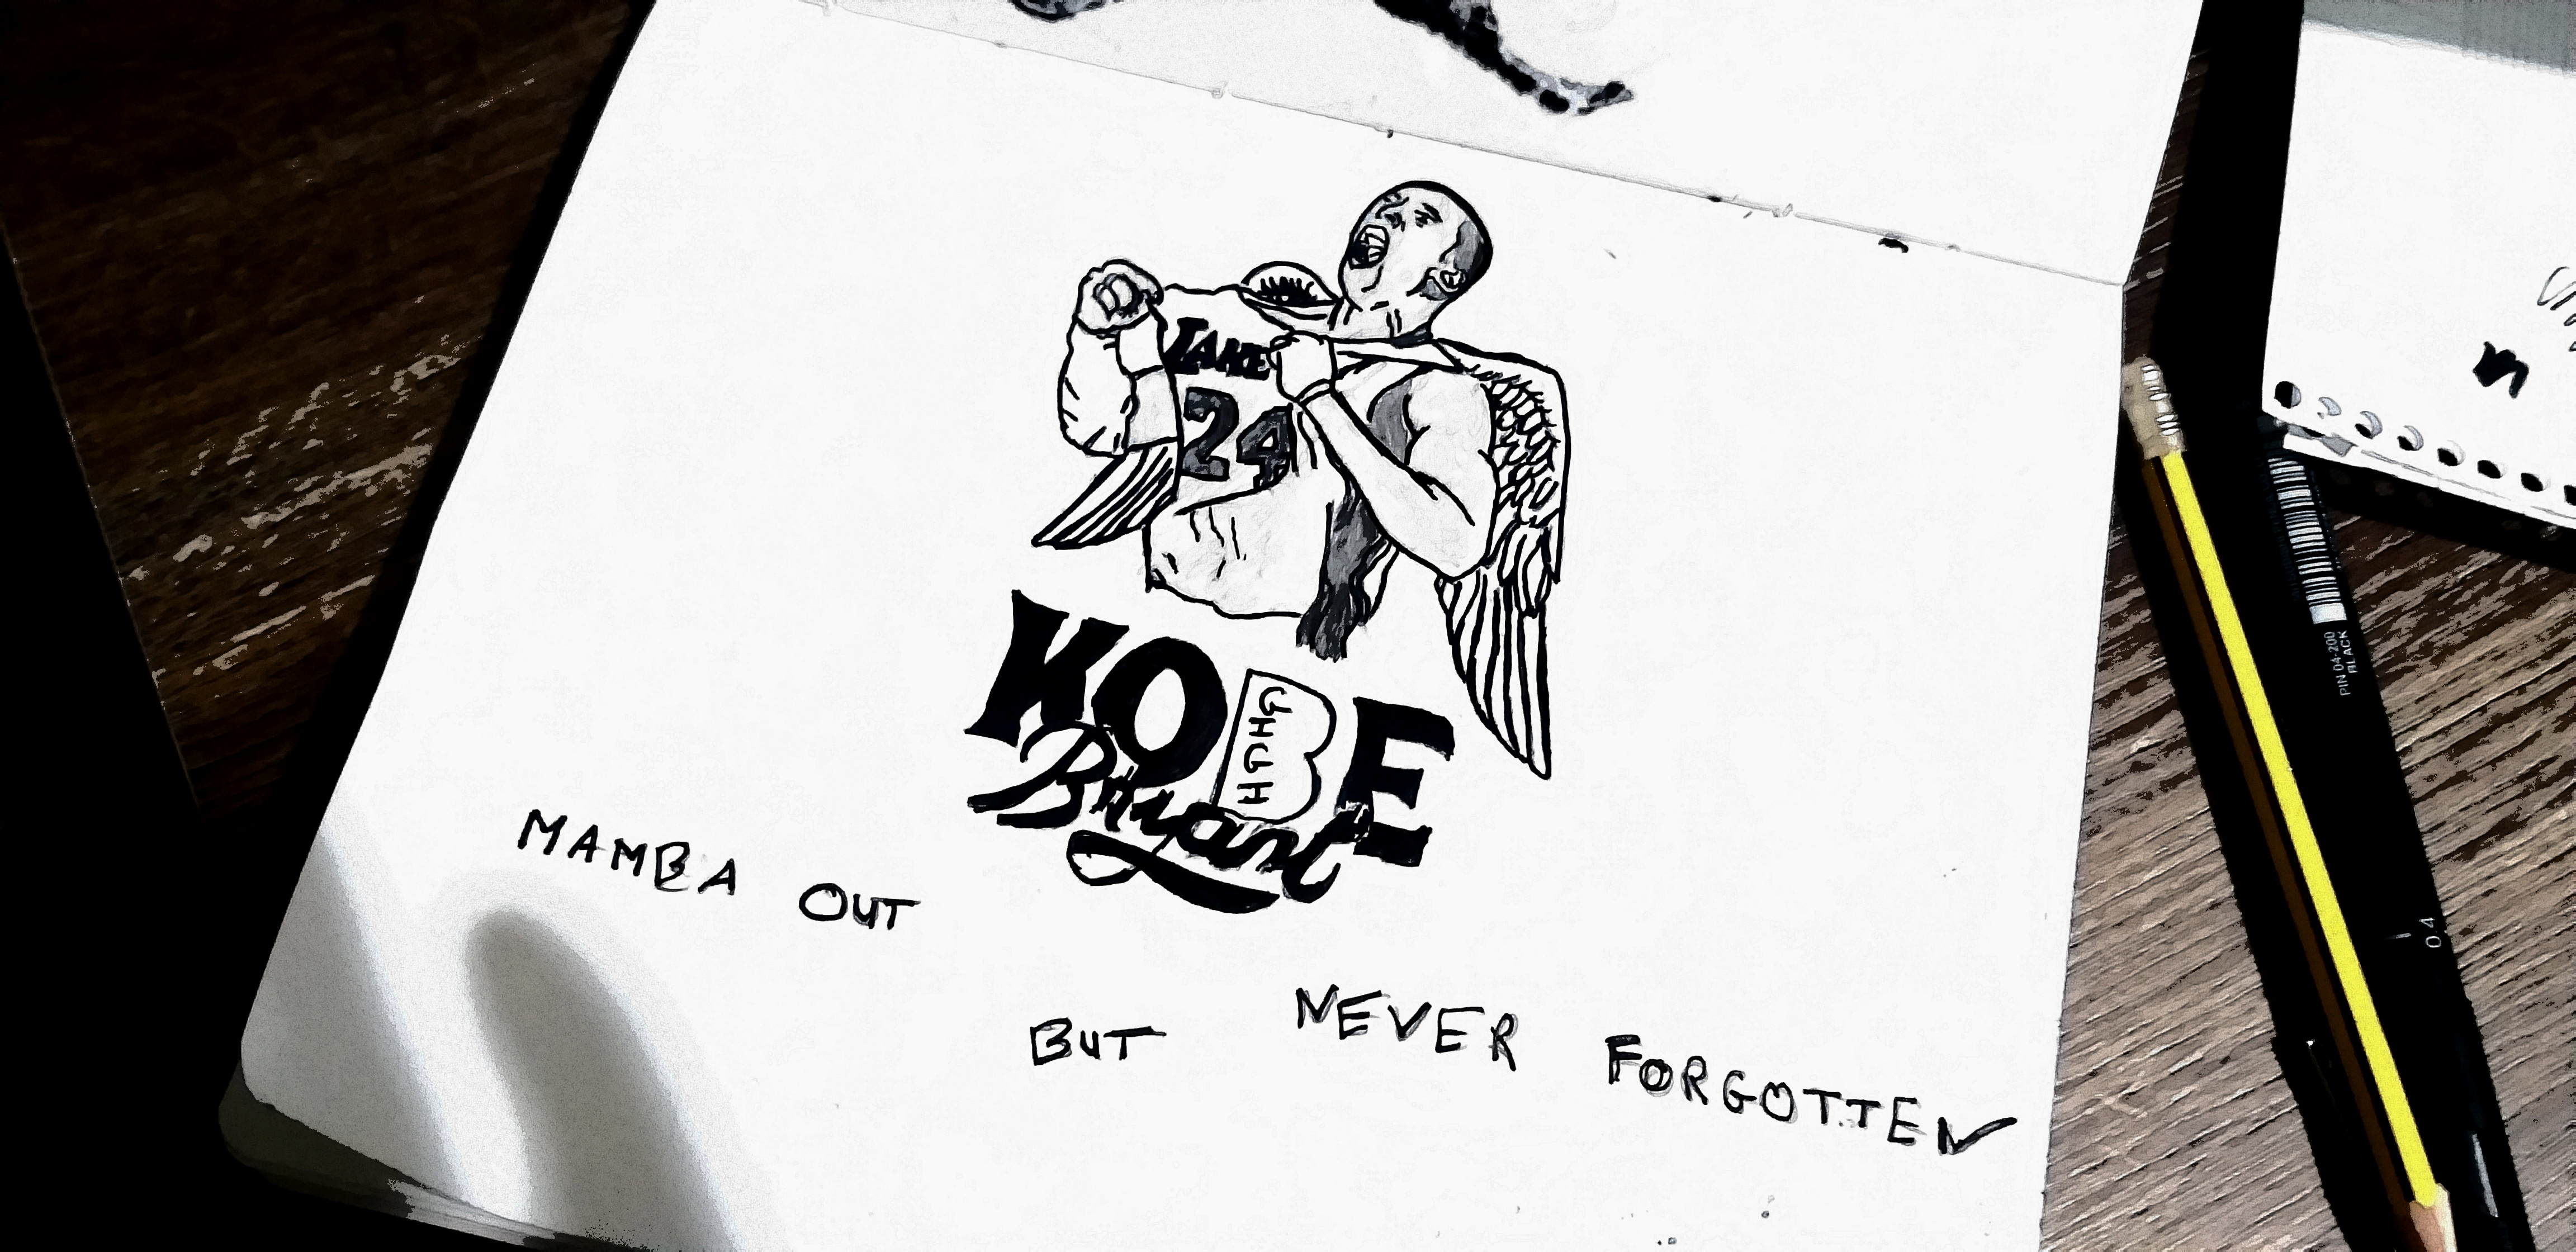 LAKE
24
KOBE
Bryant
MAMBA OUT
BUT NEVER FORGOTTEN
PIN 04-200
BLACK
0.4